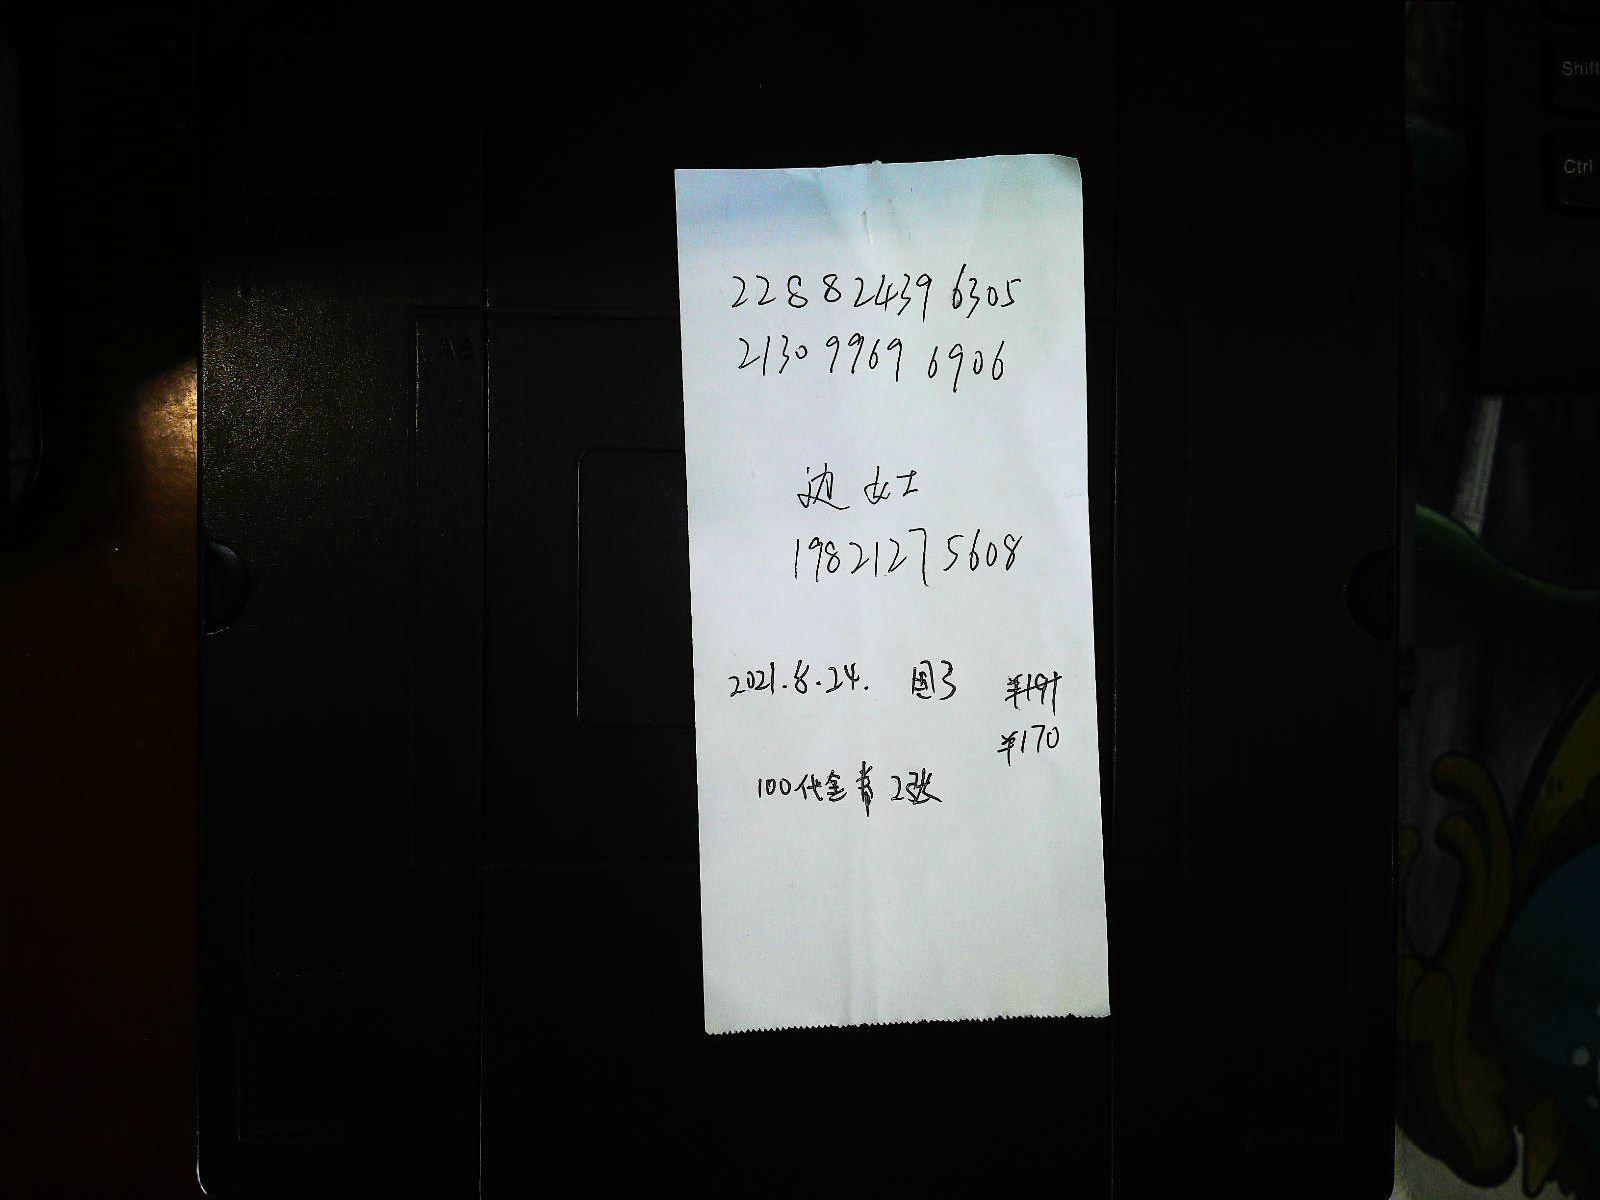 Shift
Ctrl
2288 2439 6305
2130 9969 6906
边女士
19821275608
2021.8.24. 团3 ¥191
¥170
100代金券2张